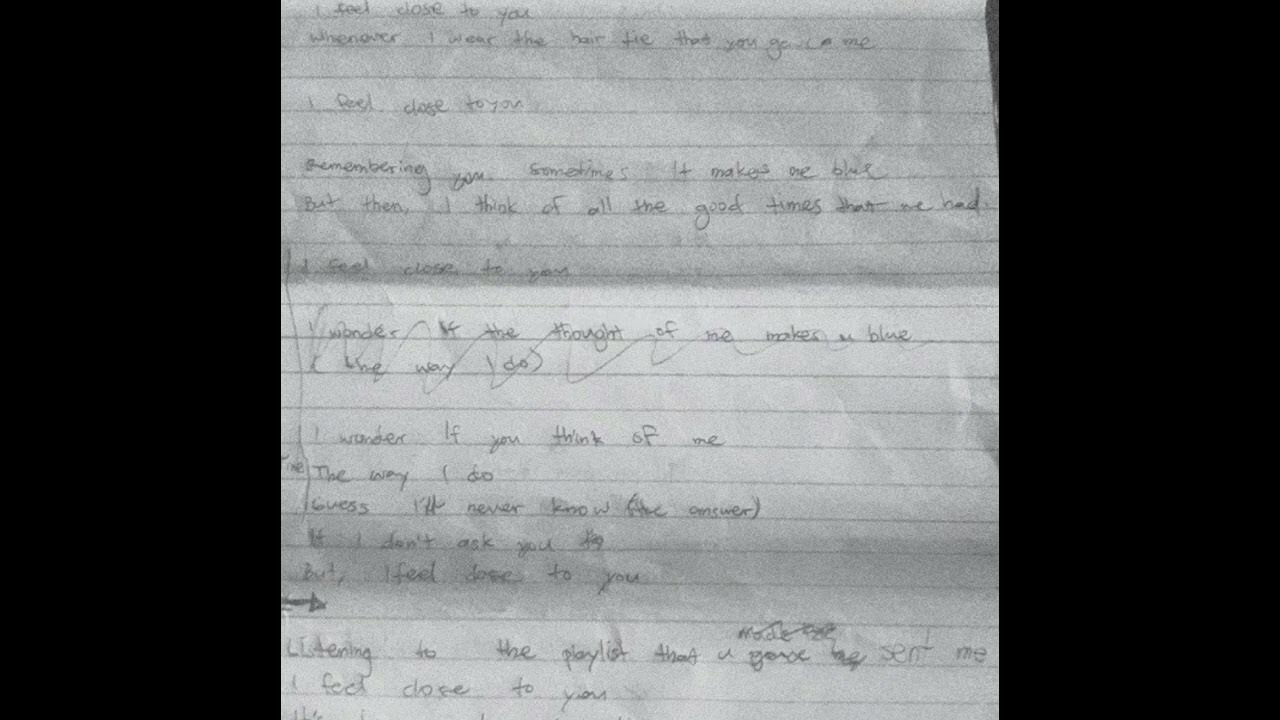 I feel close to you
whenever I wear the hair tie that you gave me
I feel close to you
Remembering you sometimes it makes me blue
But then, I think of all the good times that we had.
I feel close to you
I wonder If the thought of me makes u blue
(the way I do)
I wonder If you think of me
The way I do
Guess I'll never know (the answer)
If I don't ask you
But, I feel close to you
Listening to the playlist that u gave me sent me
I feel close to you